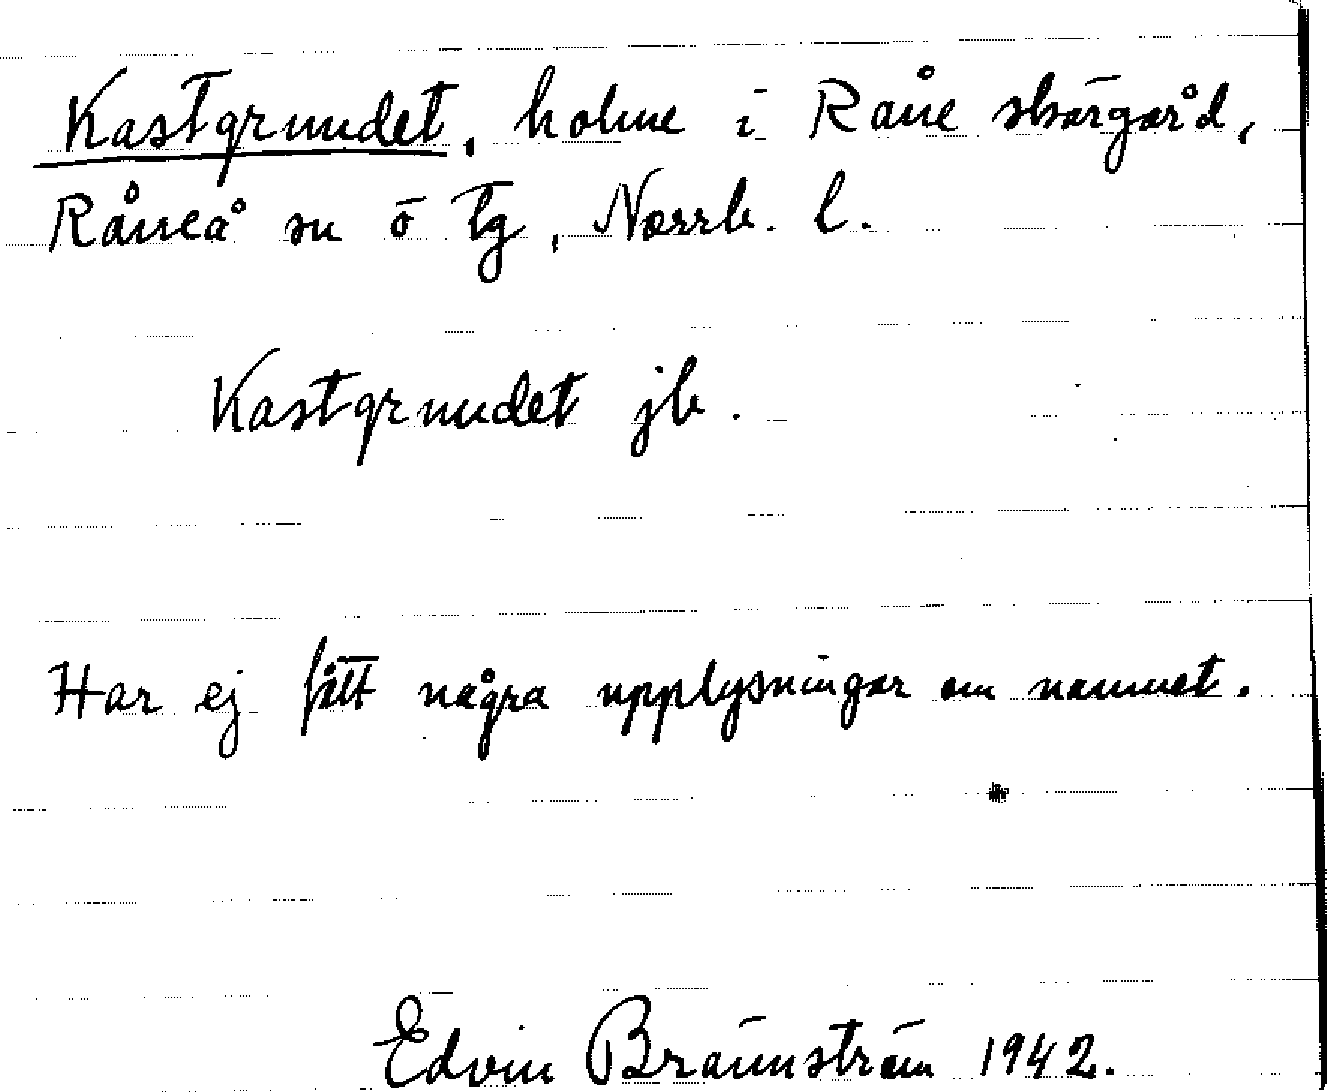 Kastgrundet, holme i Råne skärgård,
Råneå sn o tg, Norrb. l.
Kastgrundet jb.
Har ej fått några upplysningar om namnet.
Edvin Brännström 1942.